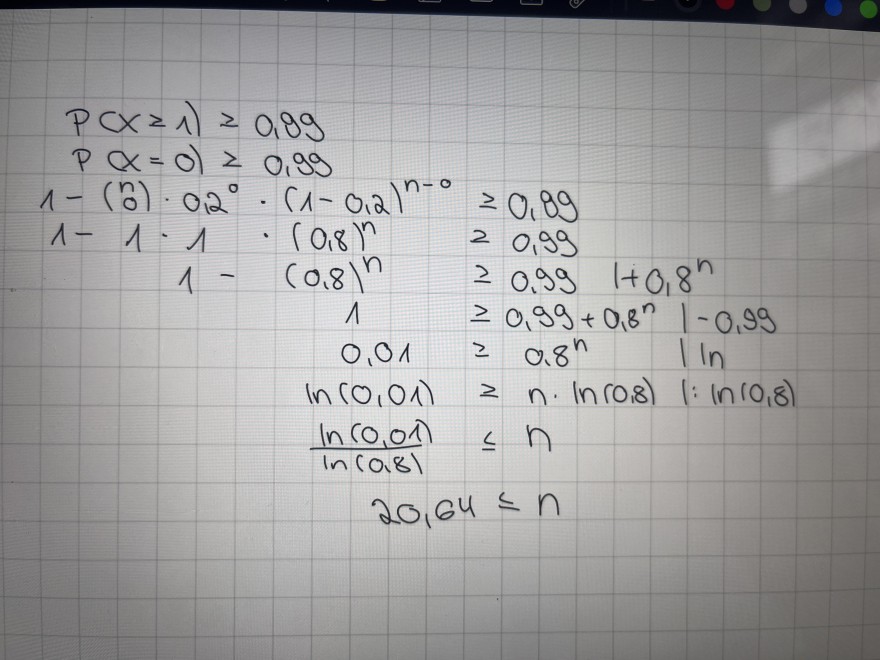 P(X ≥ 1) ≥ 0,99
P(X = 0) ≥ 0,99
1 - (n 0) · 0,2⁰ · (1 - 0,2)ⁿ⁻⁰ ≥ 0,99
1 - 1 · 1 · (0,8)ⁿ ≥ 0,99
1 - (0,8)ⁿ ≥ 0,99 |+0,8ⁿ
1 ≥ 0,99 + 0,8ⁿ |-0,99
0,01 ≥ 0,8ⁿ | ln
ln(0,01) ≥ n · ln(0,8) |: ln(0,8)
ln(0,01)/ln(0,8) ≤ n
20,64 ≤ n